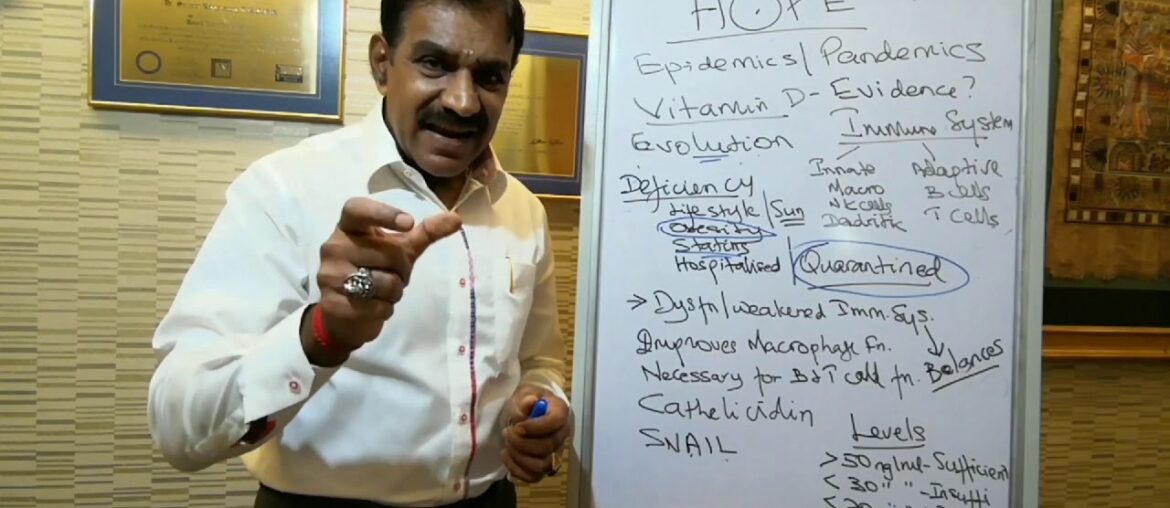 HOPE
Epidemics/Pandemics
Vitamin D - Evidence?
Evolution
Immune System
Innate
Macro
NK cells
Adaptive
B cells
T cells
Deficiency
Life style / Sun
Obesity
Statins
Hospitalised
Quarantined
→ Dysfn/weakened Imm. Sys.
Improves Macrophage fn.
Balances
Necessary for B & T cell fn.
Cathelicidin
SNAIL
Levels
>50 ng/ml - Sufficient
<30 " " - Insuffi